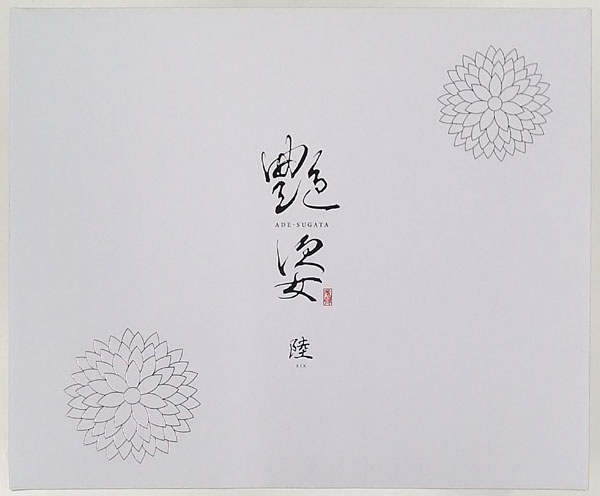 艶
ADE-SUGATA
姿
陸
SIX